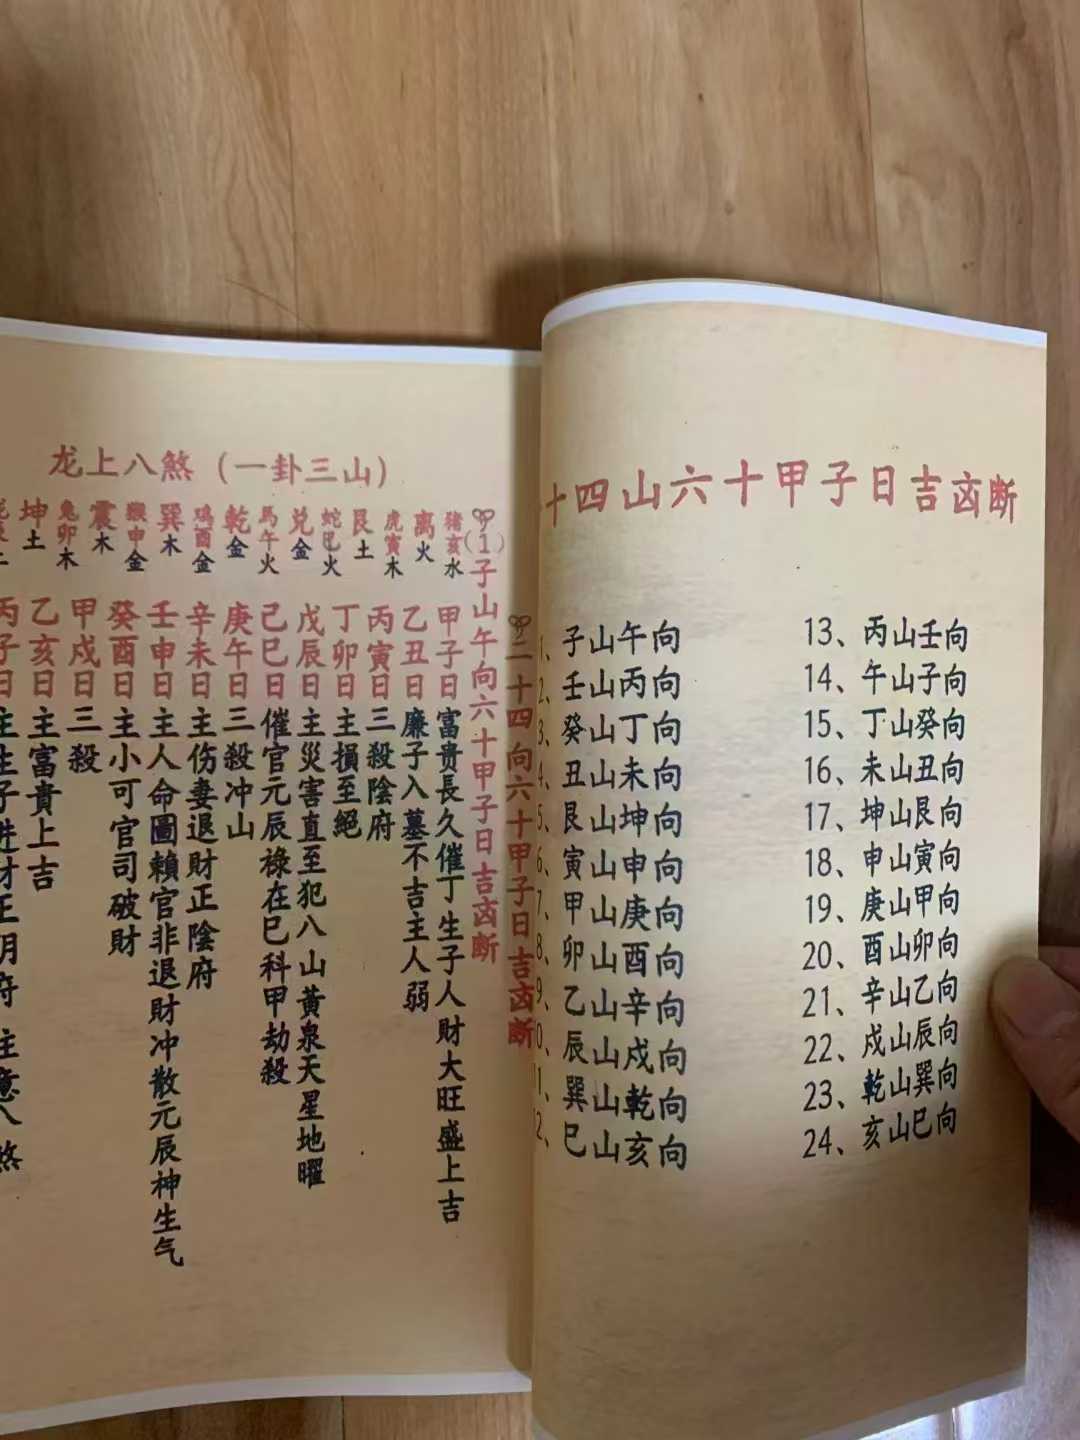 十四山六十甲子日吉凶断
1、子山午向
2、壬山丙向
3、癸山丁向
4、丑山未向
5、艮山坤向
6、寅山申向
7、甲山庚向
8、卯山酉向
9、乙山辛向
0、辰山戍向
1、巽山乾向
2、巳山亥向
13、丙山壬向
14、午山子向
15、丁山癸向
16、未山丑向
17、坤山艮向
18、申山寅向
19、庚山甲向
20、酉山卯向
21、辛山乙向
22、戍山辰向
23、乾山巽向
24、亥山巳向
二十四向六十甲子日吉凶断
龙上八煞（一卦三山）
（1）子山午向六十甲子日吉凶断
猪亥水
甲子日富贵長久催丁生子人財大旺盛上吉
离火
乙丑日廉子入墓不吉主人弱
虎寅木
丙寅日三殺陰府
艮土
丁卯日主損至絕
蛇巳火
兑金
戊辰日主災害直至犯八山黃泉天星地曜
馬午火
己巳日催官元辰祿在巳科甲劫殺
乾金
庚午日三殺冲山
鸡酉金
辛未日主伤妻退財正陰府
巽木
壬申日主人命圖賴官非退財冲散元辰神生气
猴申金
癸酉日主小可官司破財
震木
甲戍日三殺
兔卯木
乙亥日主富貴上吉
坤土
丙子日主生子进財正阴府